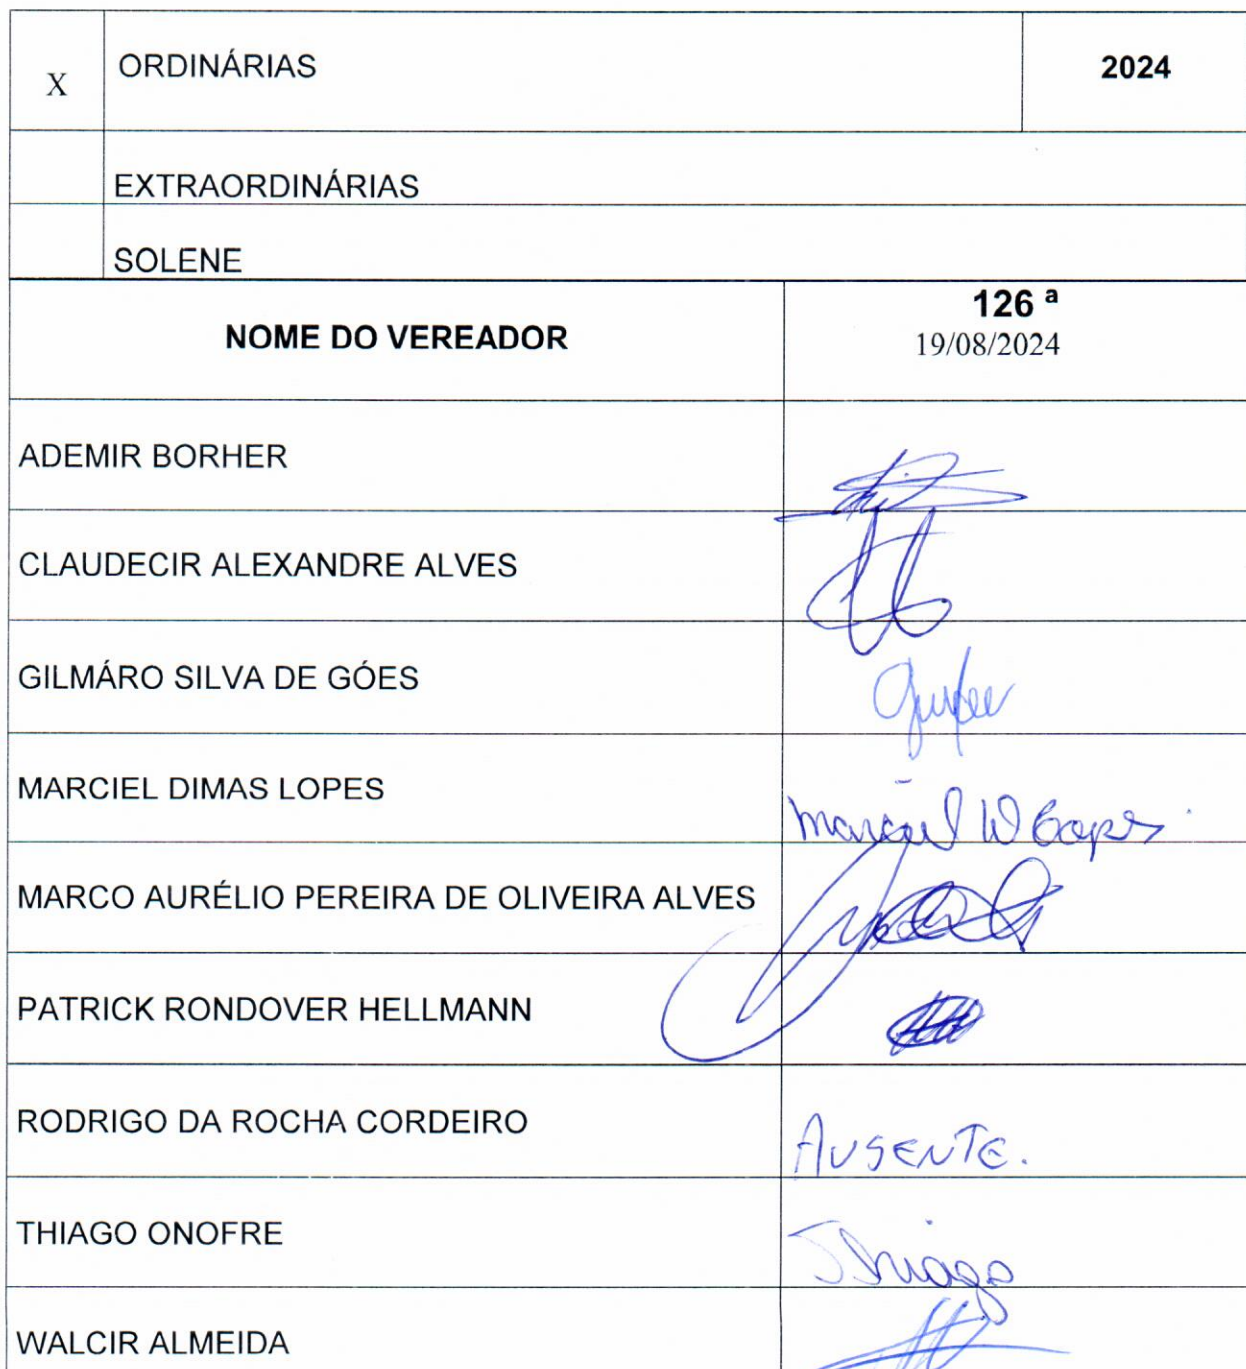 X ORDINÁRIAS 2024
EXTRAORDINÁRIAS
SOLENE
NOME DO VEREADOR 126 ª
19/08/2024
ADEMIR BORHER
CLAUDECIR ALEXANDRE ALVES
GILMÁRO SILVA DE GÓES
MARCIEL DIMAS LOPES Marciel D Lopes
MARCO AURÉLIO PEREIRA DE OLIVEIRA ALVES
PATRICK RONDOVER HELLMANN
RODRIGO DA ROCHA CORDEIRO AUSENTE.
THIAGO ONOFRE Thiago
WALCIR ALMEIDA